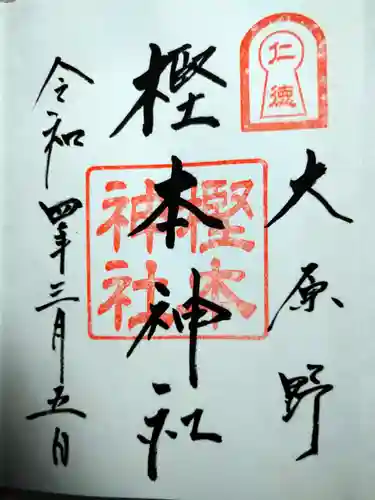 仁徳
大原野
樫本神社
樫本神社
令和四年三月五日